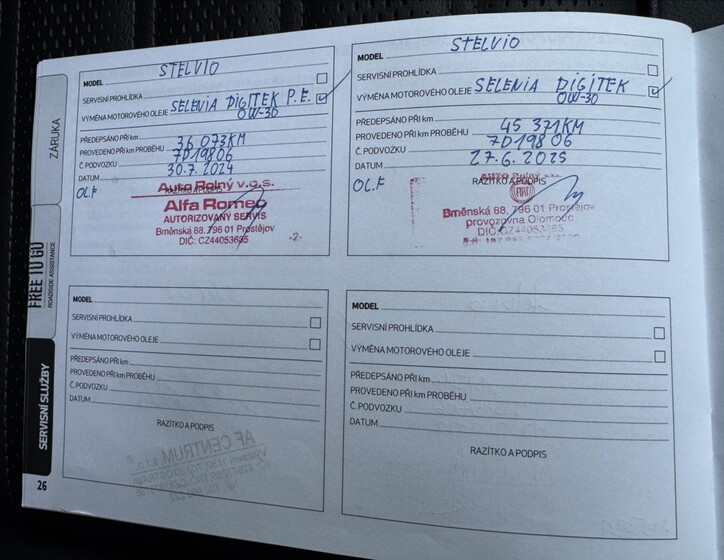 ZÁRUKA
FREE TO GO
ROADSIDE ASSISTANCE
SERVISNÍ SLUŽBY
26
MODEL STELVIO
SERVISNÍ PROHLÍDKA
VÝMĚNA MOTOROVÉHO OLEJE SELENIA DIGITEK P.E.
0W-30
PŘEDEPSÁNO PŘI km
PROVEDENO PŘI km PROBĚHU 36 073KM
Č.PODVOZKU 7D19806
DATUM 30.7.2024
OL.F
RAZÍTKO A PODPIS
Auto Rolný v.o.s.
Alfa Romeo
AUTORIZOVANÝ SERVIS
Brněnská 88, 796 01 Prostějov
DIČ: CZ44053695
-2-
MODEL STELVIO
SERVISNÍ PROHLÍDKA
VÝMĚNA MOTOROVÉHO OLEJE SELENIA DIGITEK
0W-30
PŘEDEPSÁNO PŘI km
PROVEDENO PŘI km PROBĚHU 45 371KM
Č.PODVOZKU 7D19806
DATUM 27.6.2025
OL.F
RAZÍTKO A PODPIS
FIAT
Brněnská 88, 796 01 Prostějov
provozovna Olomouc
MODEL
SERVISNÍ PROHLÍDKA
VÝMĚNA MOTOROVÉHO OLEJE
PŘEDEPSÁNO PŘI km
PROVEDENO PŘI km PROBĚHU
Č.PODVOZKU
DATUM
RAZÍTKO A PODPIS
AF CENTRUM, s.r.o.
MODEL
SERVISNÍ PROHLÍDKA
VÝMĚNA MOTOROVÉHO OLEJE
PŘEDEPSÁNO PŘI km
PROVEDENO PŘI km PROBĚHU
Č.PODVOZKU
DATUM
RAZÍTKO A PODPIS